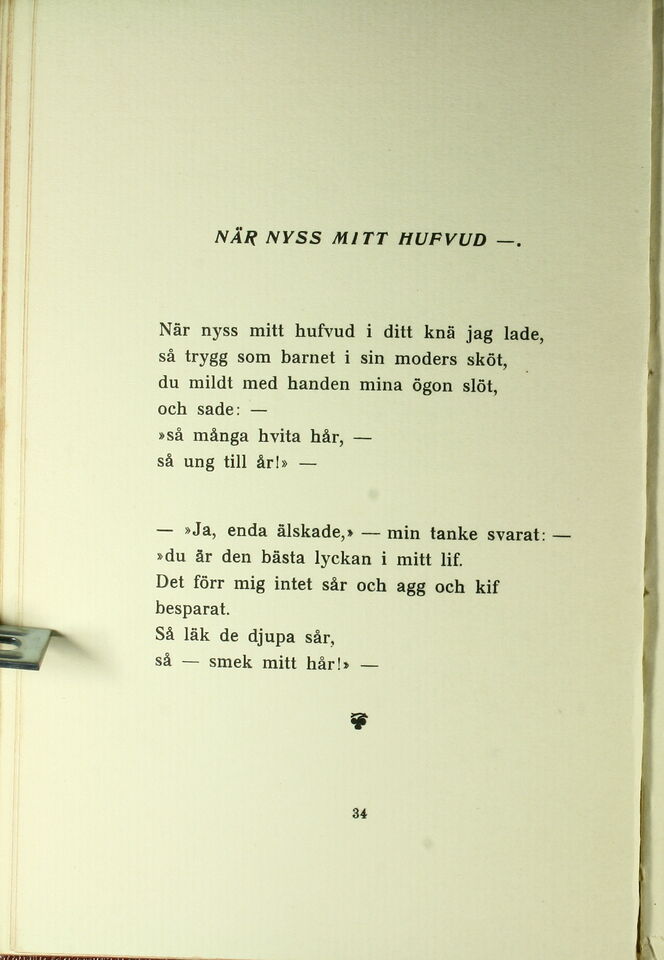 NÄR NYSS MITT HUFVUD —.
När nyss mitt hufvud i ditt knä jag lade,
så trygg som barnet i sin moders sköt,
du mildt med handen mina ögon slöt,
och sade: —
»så många hvita hår, —
så ung till år!» —
— »Ja, enda älskade,» — min tanke svarat: —
»du är den bästa lyckan i mitt lif.
Det förr mig intet sår och agg och kif
besparat.
Så läk de djupa sår,
så — smek mitt hår!» —
34